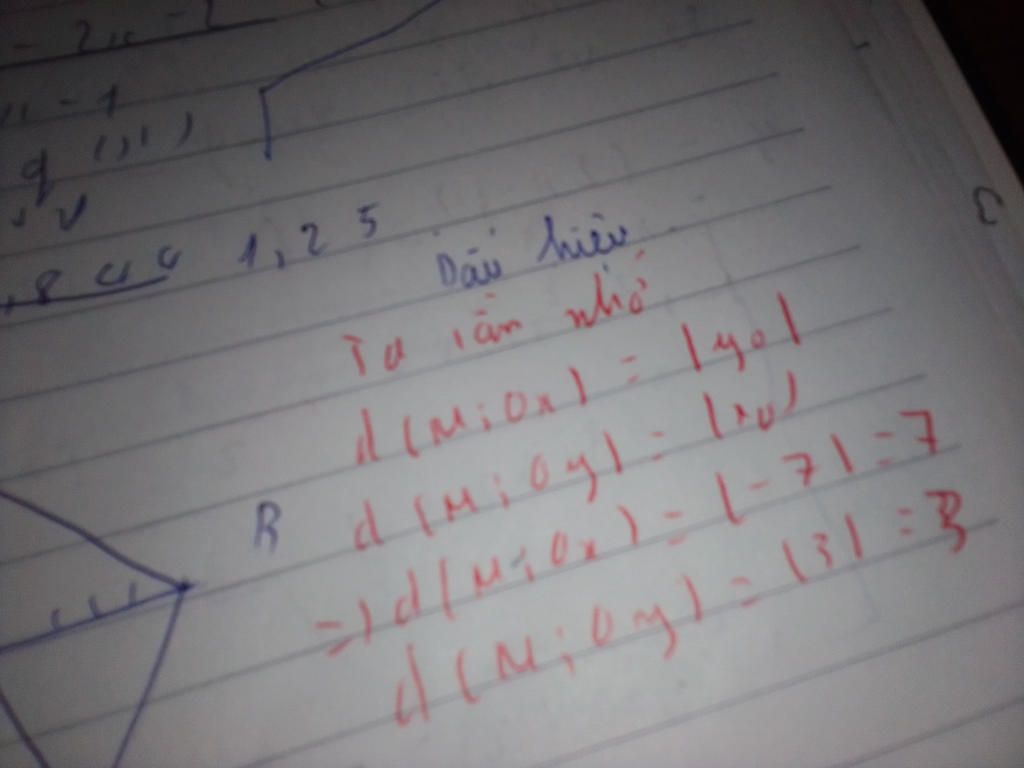 - 2x - 2
- 1
1, 2 5
Dấu hiệu
Ta cần nhớ
d(M; Ox) = |y0|
d(M; Oy) = |x0|
B
=) d(M; Ox) = |-7| = 7
d(M; Oy) = |3| = 3